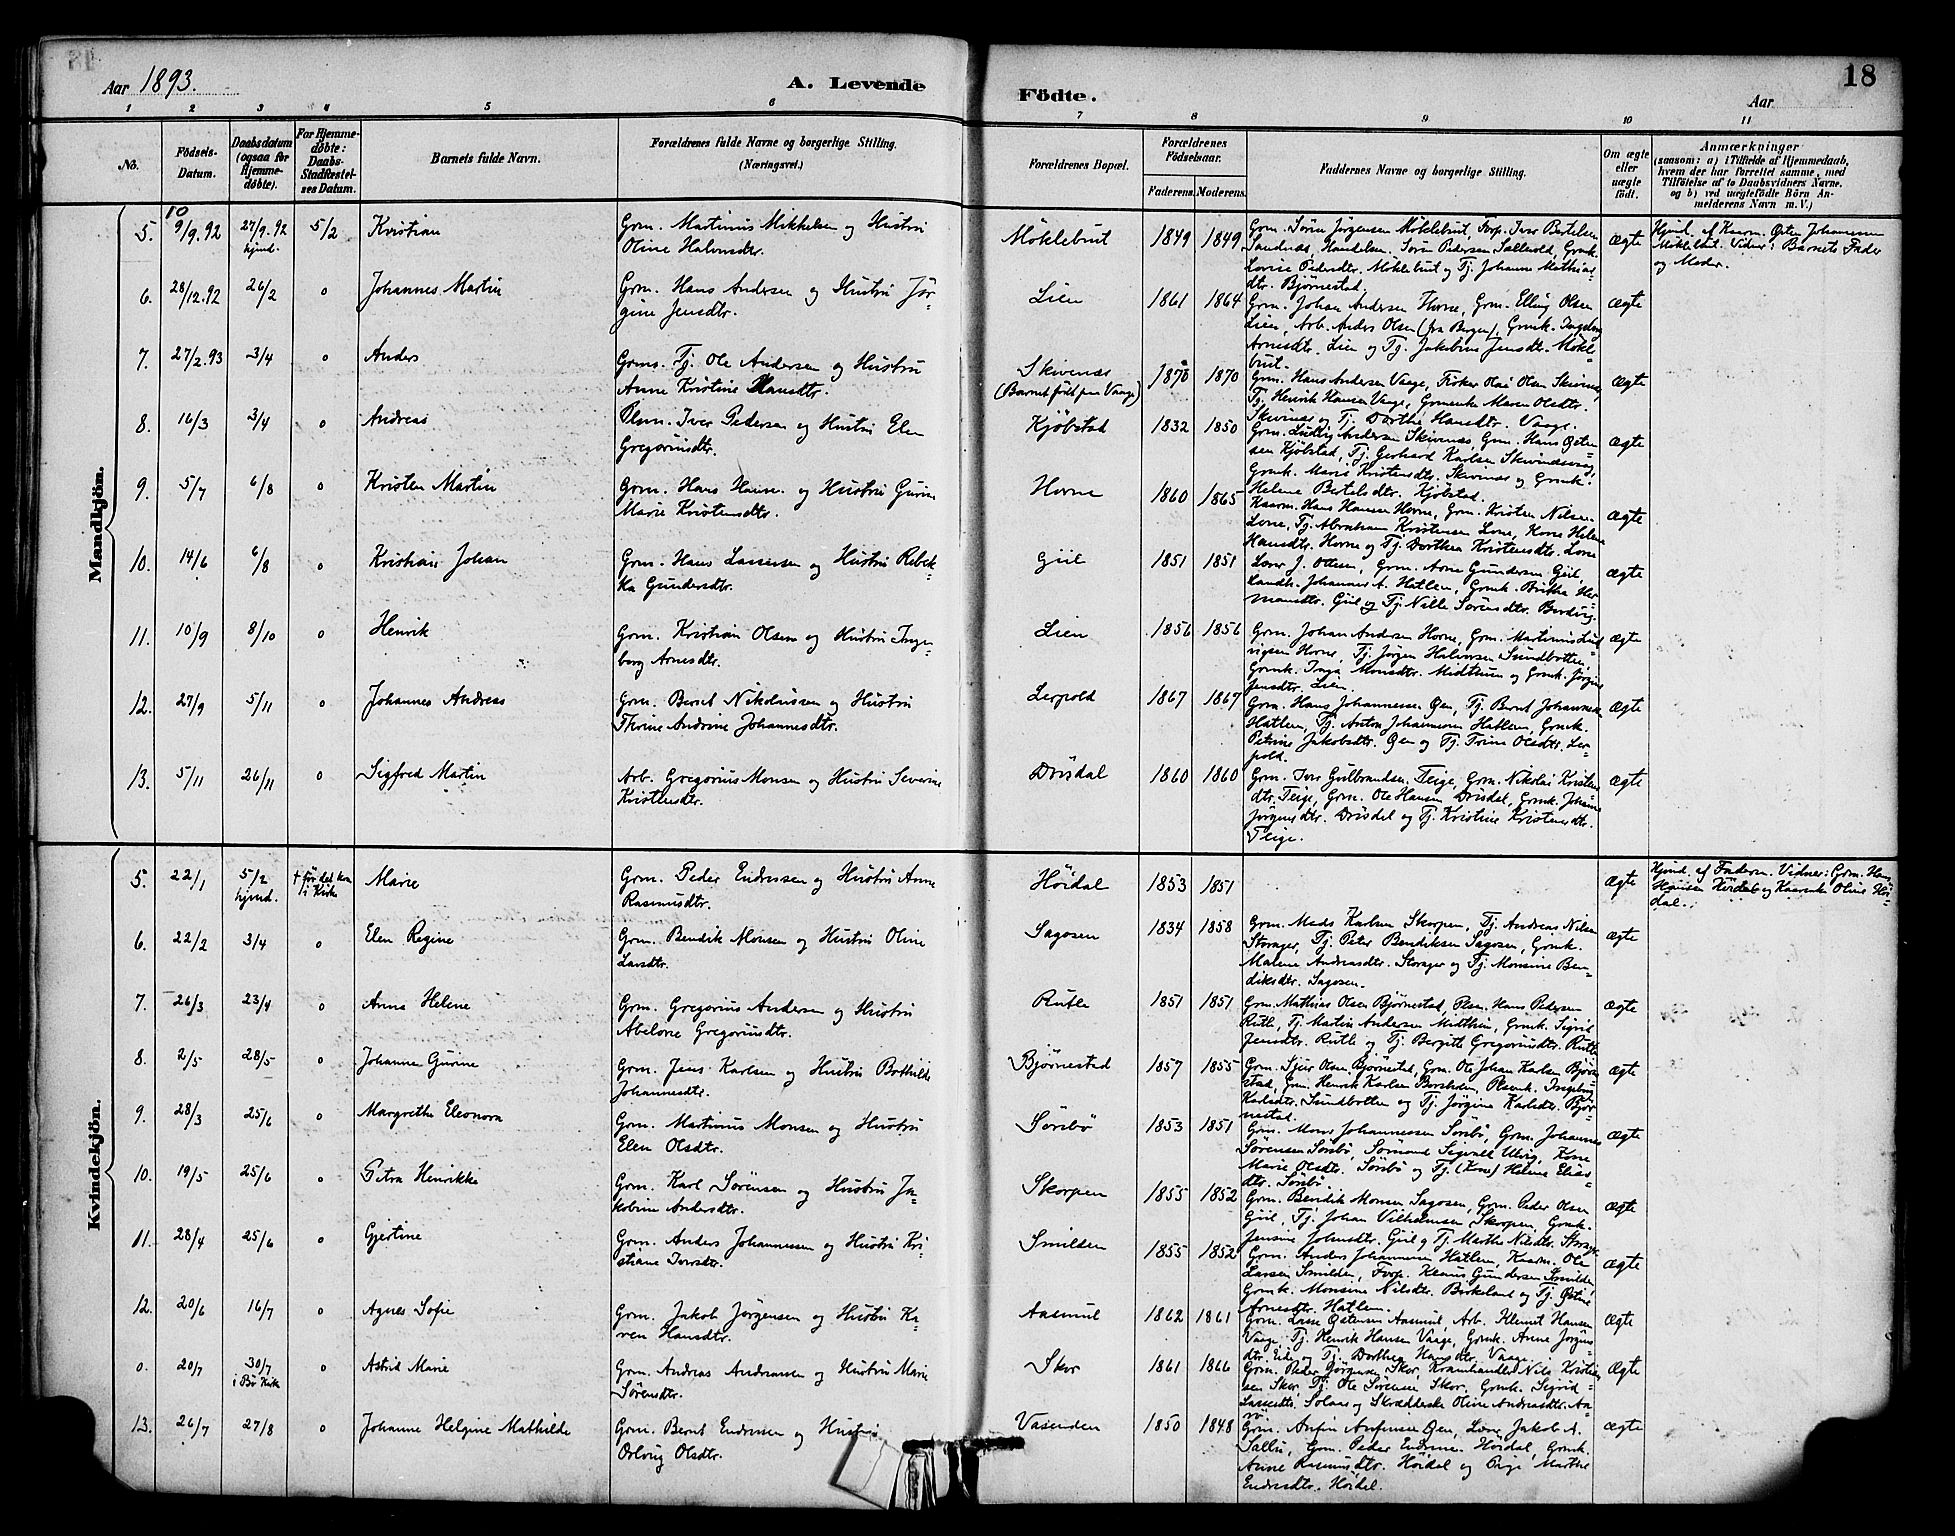 18
Aar 1893.
A. Levende Födte.
Aar
1 2 3 4 5 6 7 8 9 10 11
No.
Födsels-Datum.
Daabsdatum (ogsaa for Hjemme-døbte).
For Hjemme-døbte: Daabs-Stadfæstelses Datum.
Barnets fulde Navn.
Forældrenes fulde Navne og borgerlige Stilling. (Næringsvei.)
Forældrenes Bopæl.
Forældrenes Fødselsaar.
Faderens. Moderens.
Faddernes Navne og borgerlige Stilling.
Om ægte eller uægte født.
Anmærkninger
(saasom: a) i Tilfælde af Hjemmedaab, hvem der har forrettet samme, med Tilföielse af to Daabsvidners Navne. og b) ved uægtefödte Börn Anmelderens Navn m. V.)
Mandkjön.
5. 10 9/9.92 27/9.92 hjmd. 5/2 Kristian
Grm. Martinus Mikkelsen og Hustru
Oline Halvorsdtr.
Möklebust 1849 1849
Grm. Sörin Jörgensen Möklebust, Forp. Iver Bertelsen
Sandnæs, Handelsm. Sörin Pedersen Salbold, Grmk.
Lovise Pedersdtr. Möklebust og Tj. Johanne Mathias
dtr. Bjørnestad.
Ægte
Hjmd. af Kaarm. Østen Johannesen
Möklebust. Vidner: Barnets Fader
og Moder.
6. 28/12.92 26/2 o Johannes Martin
Grm. Hans Andersen og Hustru Jør-
gine Jensdtr.
Lien 1861 1864
Grm. Johan Andersen Hovne, Grm. Elling Olsen
Lien, Arb. Anders Olsen (fra Bergen), Grmk. Ingeborg
Arnesdtr. Lien og Tj. Jakobine Jensdtr. Mökle-
bust.
Ægte
7. 27/2.93 3/4 o Anders
Grms. Tj. Ole Andersen og Hustru
Anne Kristine Hansdtr.
Skivenæs
(Barnet født paa Vaage)
1870 1870
Grm. Hans Andersen Vaage, Fisker Olai Olsen Skivenæs,
Tj. Henrik Hansen Vaage, Grmenke Maren Olsdtr.
Skivenæs og Tj. Dorthe Hansdtr. Vaage.
Ægte
8. 16/3 3/4 o Andreas
Plsm. Iver Pedersen og Hustru Elen
Gregoriusdtr.
Kjöbstad 1832 1850
Grm. Ludvig Andersen Skivenæs, Grm. Hans Østen-
sen Kjöbstad, Tj. Gerhard Karlsen Skivenæs,
Grmk. Maris Kristensdtr. Skivenæs og Grmk.
Helene Bertelsdtr. Kjöbstad.
Ægte
9. 5/7 6/8 o Kristen Martin
Grm. Hans Hansen og Hustru Gurine
Marie Kristensdtr.
Hovne 1860 1865
Kaarm. Hans Hansen Hovne, Grm. Kristen Nilsen
Lone, Tj. Abraham Kristensen Lone, Kone Helene
Hansdtr. Hovne og Tj. Dorthea Kristensdtr. Lone
Ægte
10. 14/6 6/8 o Kristian Johan
Grm. Hans Lassesen og Hustru Rebek-
ka Gundersdtr.
Giil 1851 1851
J. Ottesen, Grm. Arne Gundersen Giil,
Landh. Johannes A. Hatlem, Grmk. Brithe Her-
mansdtr. Giil og Tj. Nille Sörensdtr.
Ægte
11. 10/9 8/10 o Henrik
Grm. Kristian Olsen og Hustru Inge-
borg Arnesdtr.
Lien 1856 1856
Grm. Johan Andersen Hovne, Grm. Martinus Lud-
vigsen Hovne, Tj. Jörgen Halvorsen Sundbotten,
Grmk. Inga Monsdtr. Midttun og Grmk. Jörgine
Jensdtr. Lien.
Ægte
12. 27/9 5/11 o Johannes Andreas
Grm. Bernt Nikolaisen og Hustru
Thrine Andrine Johannesdtr.
Leepold 1867 1867
Grm. Hans Johannessen Øen, Tj. Bernt Johannesen
Hatlem, Tj. Anton Johannesen Hatlem, Grmk.
Petrine Jakobsdtr. Øen og Tj. Trine Olsdtr. Lee-
pold.
Ægte
13. 5/11 26/11 o Sigfred Martin
Arb. Gregorius Monsen og Hustru Severine
Kristensdtr.
Drisdal 1860 1860
Grm. Iver Gulbrandsen Teige, Grm. Nikolai Kristens
dtr. Teige, Grm. Ole Hansen Drisdal, Grmk. Johanne
Jörgensdtr. Drisdal og Tj. Kristine Kristensdtr.
Teige.
Ægte
Kvindekjön.
5. 22/1 5/2 hjmd. † før det kom i Kirke Marie
Grm. Peder Endresen og Hustru Anne
Rasmusdtr.
Höidal 1853 1851
Ægte
Hjmd. af Faderen. Vidner: Grm. Hans
Hansen Höidal og Kaarenke Oline Höi-
dal.
6. 22/2 3/4 o Elen Regine
Grm. Bendik Monsen og Hustru Oline
Larsdtr.
Sagosen 1834 1858
Grm. Mads Karlsen Skorpen, Tj. Andreas Nilsen
Storager, Tj. Peter Bendiksen Sagosen, Grmk.
Malene Andreasdtr. Storager og Tj. Monsine Ben-
diksdtr. Sagosen.
Ægte
7. 26/3 23/4 o Anna Helene
Grm. Gregorius Andersen og Hustru
Abelone Gregoriusdtr.
Rutle 1851 1851
Grm. Mathias Olsen Bjørnestad, Plsm. Hans Pedersen
Rutle, Tj. Martin Andersen Midttun, Grmk. Sigrid
Jensdtr. Rutle og Tj. Bergitte Gregoriusdtr. Rutle
Ægte
8. 2/5 28/5 o Johanne Gurine
Grm. Jens Karlsen og Hustru Bothilde
Johannesdtr.
Bjørnestad 1857 1855
Grm. Sjur Olsen Bjørnestad, Grm. Ole Johan Karlsen Bjørne-
stad, Grm. Henrik Karlsen Borsholm, Plsenk. Ingeborg
Karlsdtr. Sundbotten og Tj. Jørgine Karlsdtr. Bjør-
nestad.
Ægte
9. 28/3 25/6 o Margrethe Eleonora
Grm. Martinus Monsen og Hustru
Elen Olsdtr.
Sörsbö 1853 1851
Grm. Mons Johannessen Sörsbö, Grm. Johannes
Sörensen Sörsbö, Sömand Sigvald Uhrig, Kone
Marie Olsdtr. Sörsbö og Tj. (Kone) Helene Elias-
dtr. Sörsbö.
Ægte
10. 19/5 25/6 o Petra Henrikke
Grm. Karl Sørensen og Hustru Ja-
kobine Andersdtr.
Skorpen 1855 1852
Grm. Bendik Monsen Sagosen, Grm. Peder Olsen
Giil, Tj. Johan Vilhelmsen Skorpen, Grmk.
Jensine Johnsdtr. Giil og Tj. Marthe Nilsdtr. Storager
Ægte
11. 28/4 25/6 o Gjertine
Grm. Anders Johannessen og Hustru Kri-
stiane Iversdtr.
Smilden 1855 1852
Grm. Anders Johannesen Hatlem, Kaarm. Ole
Larsen Smilden, Forp. Klaus Gundersen Smilden,
Grmk. Monsine Nilsdtr. Birkeland og Tj. Østine
Arnesdtr. Hatlem.
Ægte
12. 20/6 16/7 o Agnes Sofie
Grm. Jakob Jørgensen og Hustru Ka-
ren Hansdtr.
Aasmul 1862 1861
Grm. Lasse Østensen Aasmul, Arb. Klemet Hansen
Vaage, Tj. Henrik Hansen Vaage, Grmk. Anne Jörgens
dtr. Eide og Tj. Dorthea Hansdtr. Vaage.
Ægte
o. 20/7 30/7 i Bø Kirke o Astrid Marie
Grm. Andreas Andreassen og Hustru Marie
Sörensdtr.
Skor 1861 1866
Grm. Peder Jörgensen Skor, Kramhandler Nils Kristian-
sen Skor, Tj. Ole Sørensen Skor, Grmk. Sigrid
Lassedtr. Solaas og Skrædderske Oline Andreasdtr. Aa-
rö.
Ægte
13. 26/7 27/8 o Johanne Helgine Mathilde
Grm. Bernt Endresen og Hustru
Orlovig Olsdtr.
Vasenden 1850 1848
Grm. Anfin Anfinsen Øen, Jakob A.
Sallei, Grm. Peder Endresen Höidal, Grmk.
Anne Rasmusdtr. Höidal og Pige Marthe
Endresdtr. Höidal.
Ægte